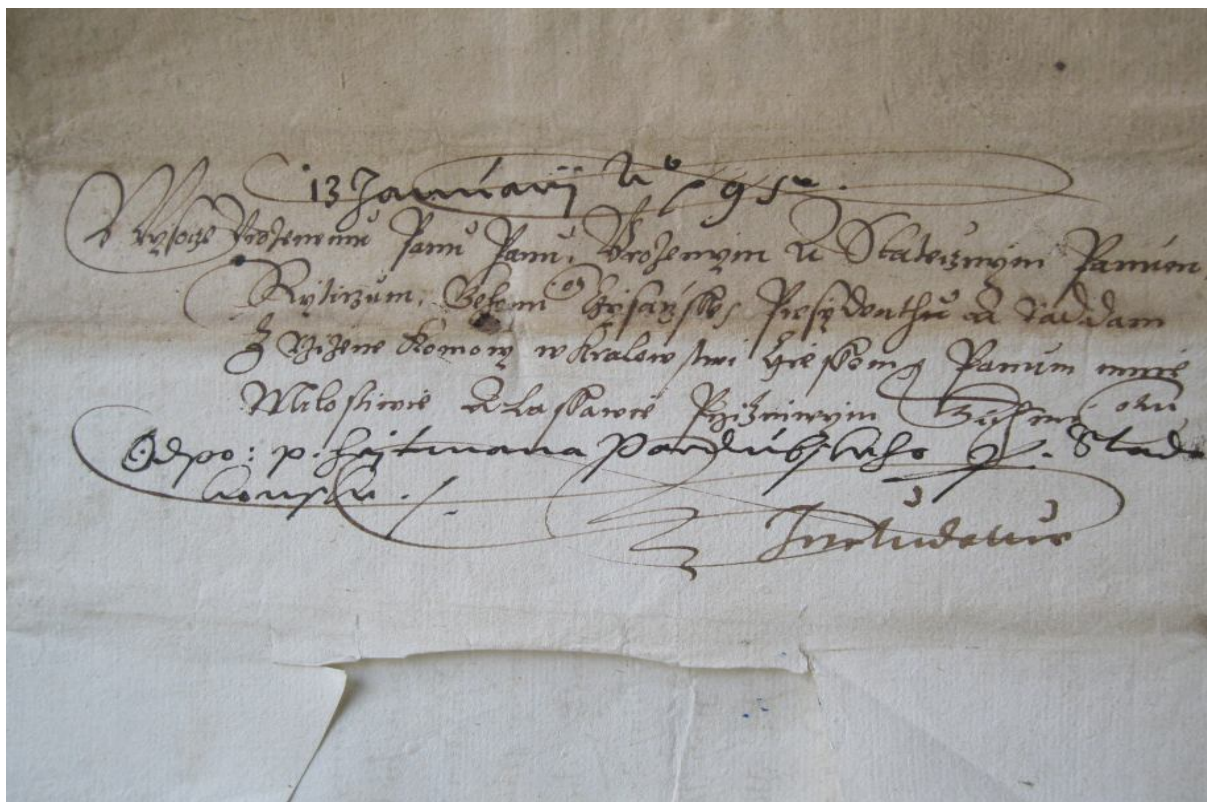 13 Januarij Ao 95
Wysocze Urozenemu Panu Panu, Urozenym A Statecznym Panuom
Rytirzum, Geho Mti Czysarzske Presydenthu A Raddam
Zrzizene Komory w Kralowstwi Czieskem Panum mnie
Milostiwie A Laskawie Przizniwym
Odpo: p. hejtmana Pardubskeho
Includatur